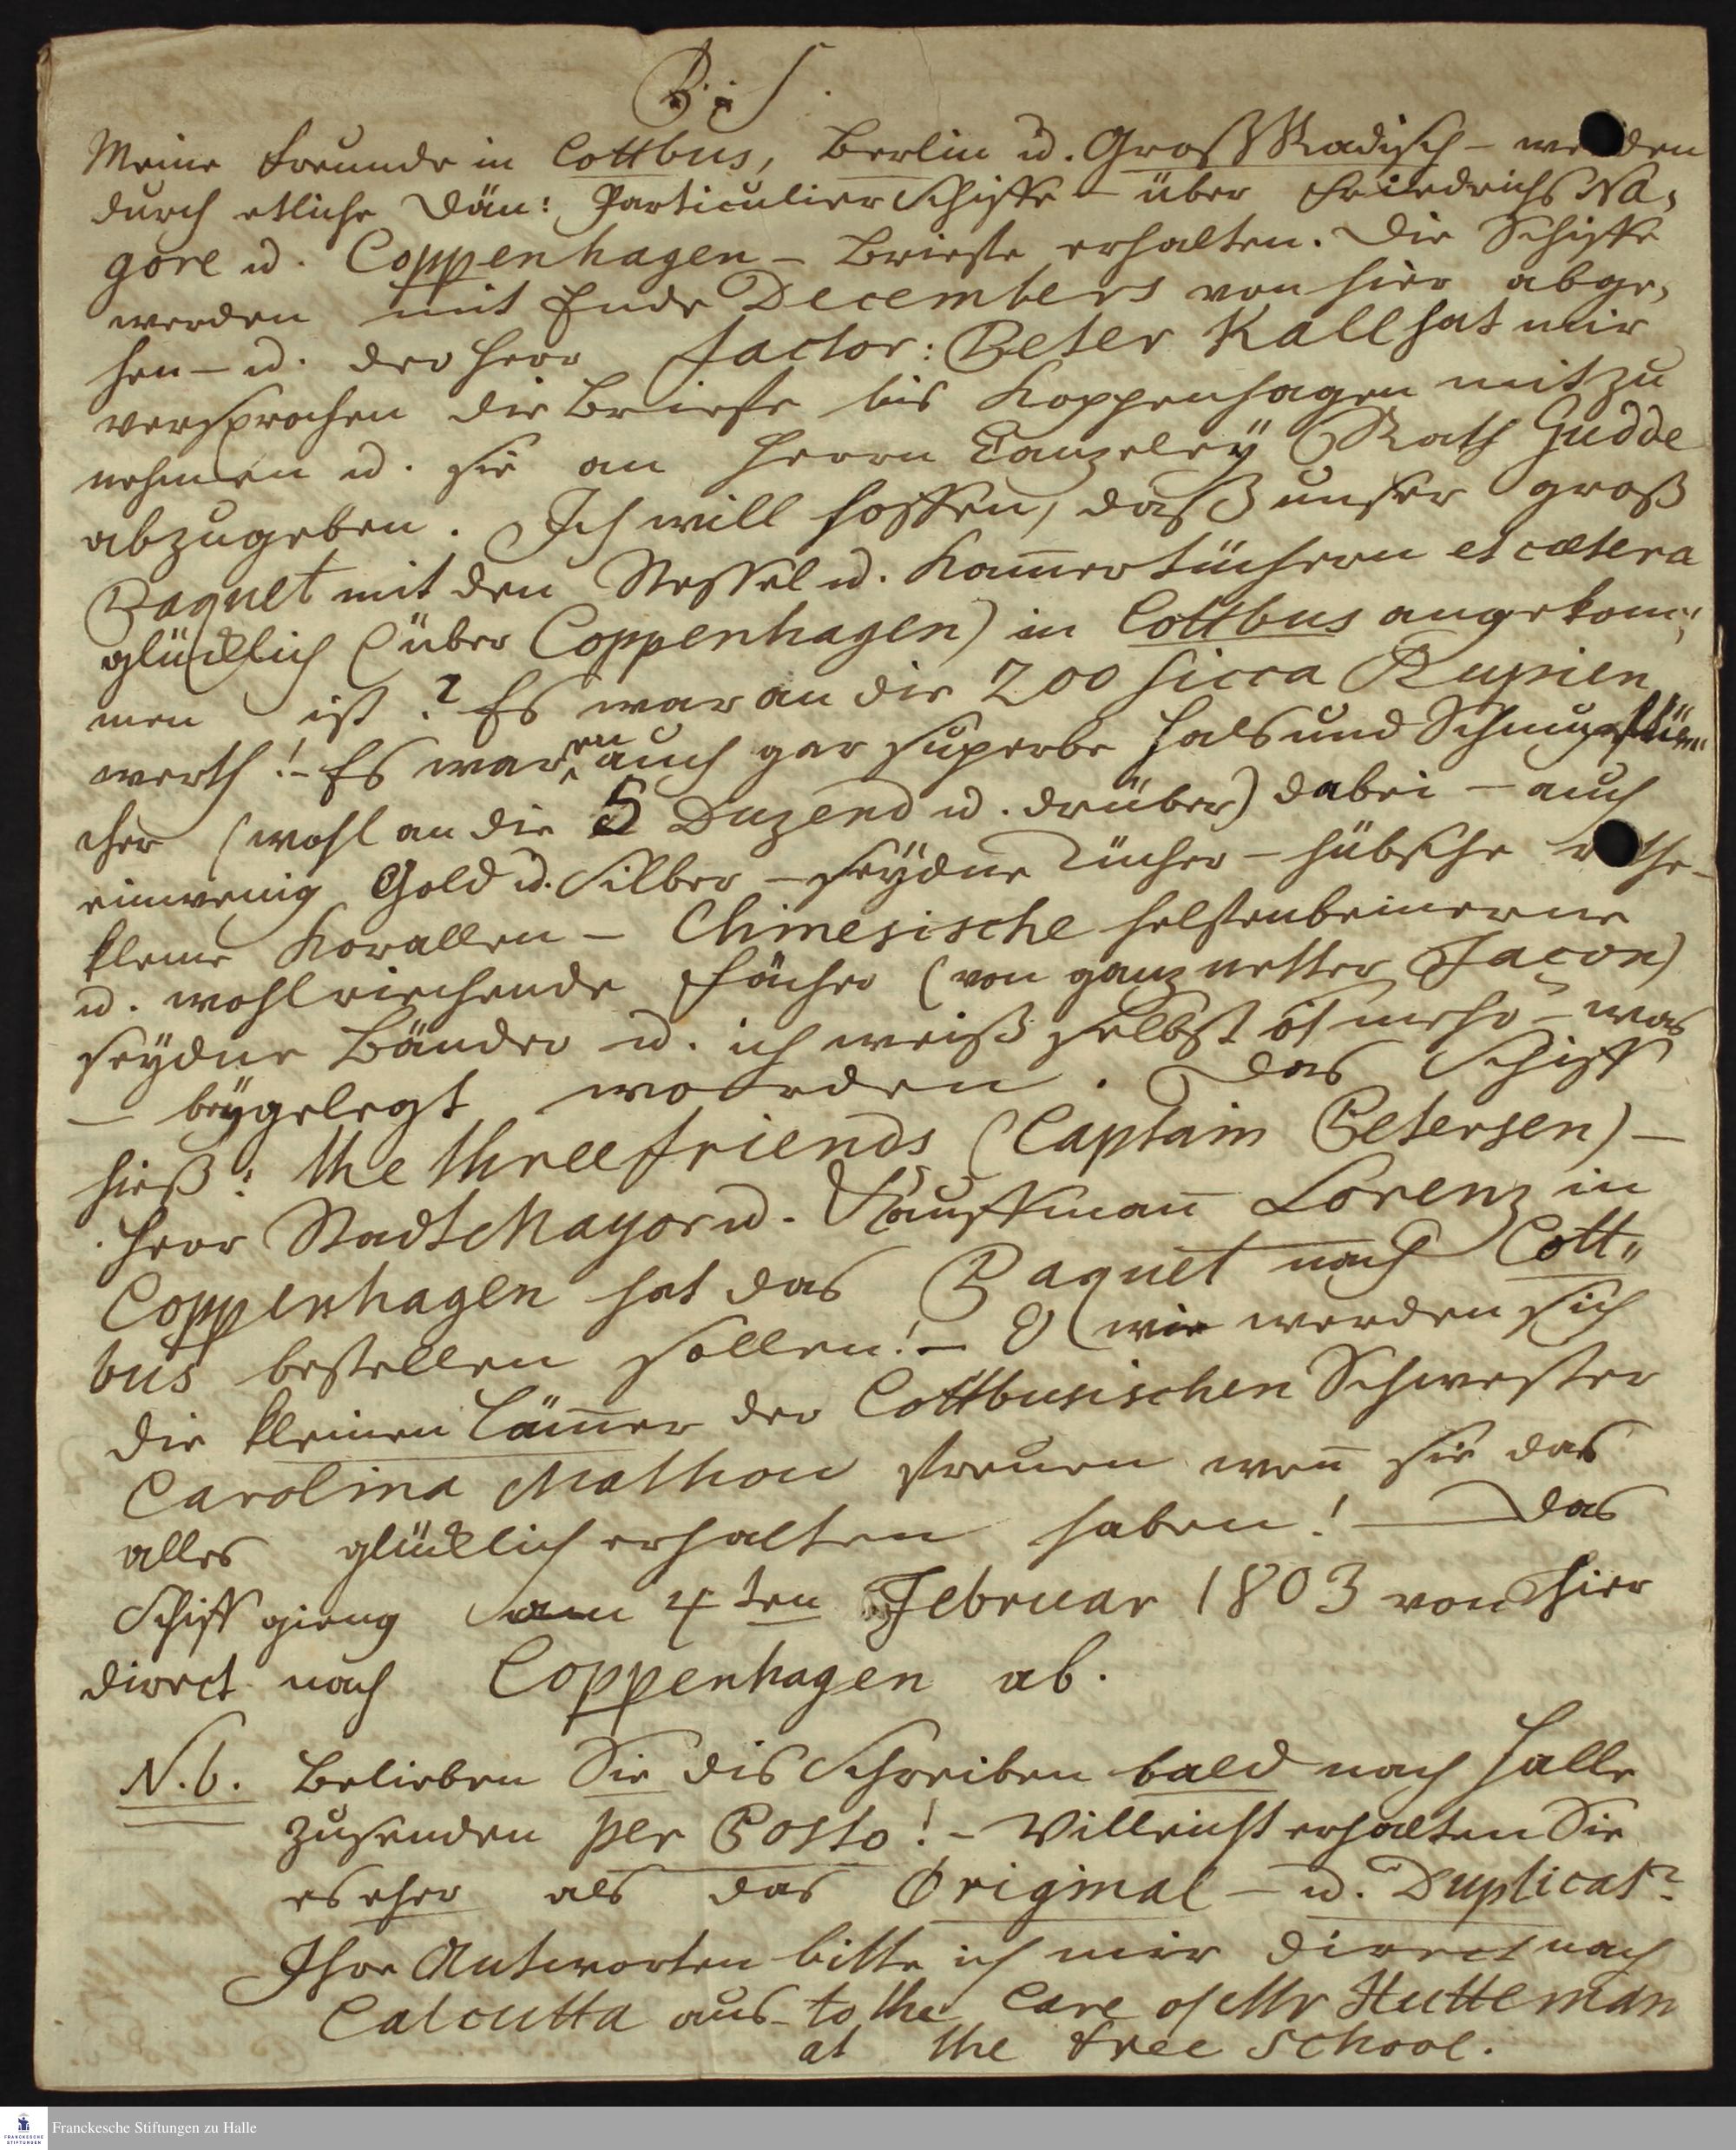 P. S.
Meine Freunde in Cottbus, Berlin u. Groß Radisch – werden
durch etliche Dän: Particulier Schiffe – über Friedrichs Na,
gore u. Coppenhagen – Briefe erhalten. Die Schiffe
werden mit Ende Decembers von hier abge,
hen – u. der Herr Factor: Peter Kall hat mir
versprochen die Briefe bis Koppenhagen mitzu
nehmen u. sie an Herrn Canzeley Rath Gudde
abzugeben. Ich will hoffen, daß unser groß
Paquet mit den Nessel u. Kam̅ertüchern et cætera
glücklich (über Coppenhagen) in Cottbus angekom,,
men ist? Es war an die 200 Sicca Rupien
werth! – Es waren auch gar superbe Hals und Schnupftü,,
cher (wohl an die 5 Duzend u. drüber) dabei – auch
einwenig Gold u. Silber – seydne Tücher – hübsche rothe –
kleine Korallen – Chinesische helfenbeinerne
u. wohlriechende Fächer (von ganz netter Façon)
seydne Bänder u. ich weiß selbst nicht mehr – was
– beygelegt worden. Das Schiff
hieß: the three friends (Captain Petersen) –
Herr Stadt Mayor u. Kauffman̅ Lorenz in
Coppenhagen hat das Paquet nach Cott,,
bus bestellen sollen! – O wie werden sich
die kleinen Läm̅er der Cottbusischen Schwester
Carolina Mathow freuen wen̅ sie das
alles glücklich erhalten haben! — Das
Schiff gieng am 4ten Februar 1803 von hier
direct nach Coppenhagen ab.
N.b. Belieben Sie dis Schreiben bald nach Halle
zusenden per Posto! – Villeicht erhalten Sie
es eher als das Original – u. Duplicat?
Ihre Antworten bitte ich mir direct nach
Calcutta aus – to the Care of Mr Hutteman
at the free School.
Franckesche Stiftungen zu Halle
FRANCKESCHE
STIFTUNGEN